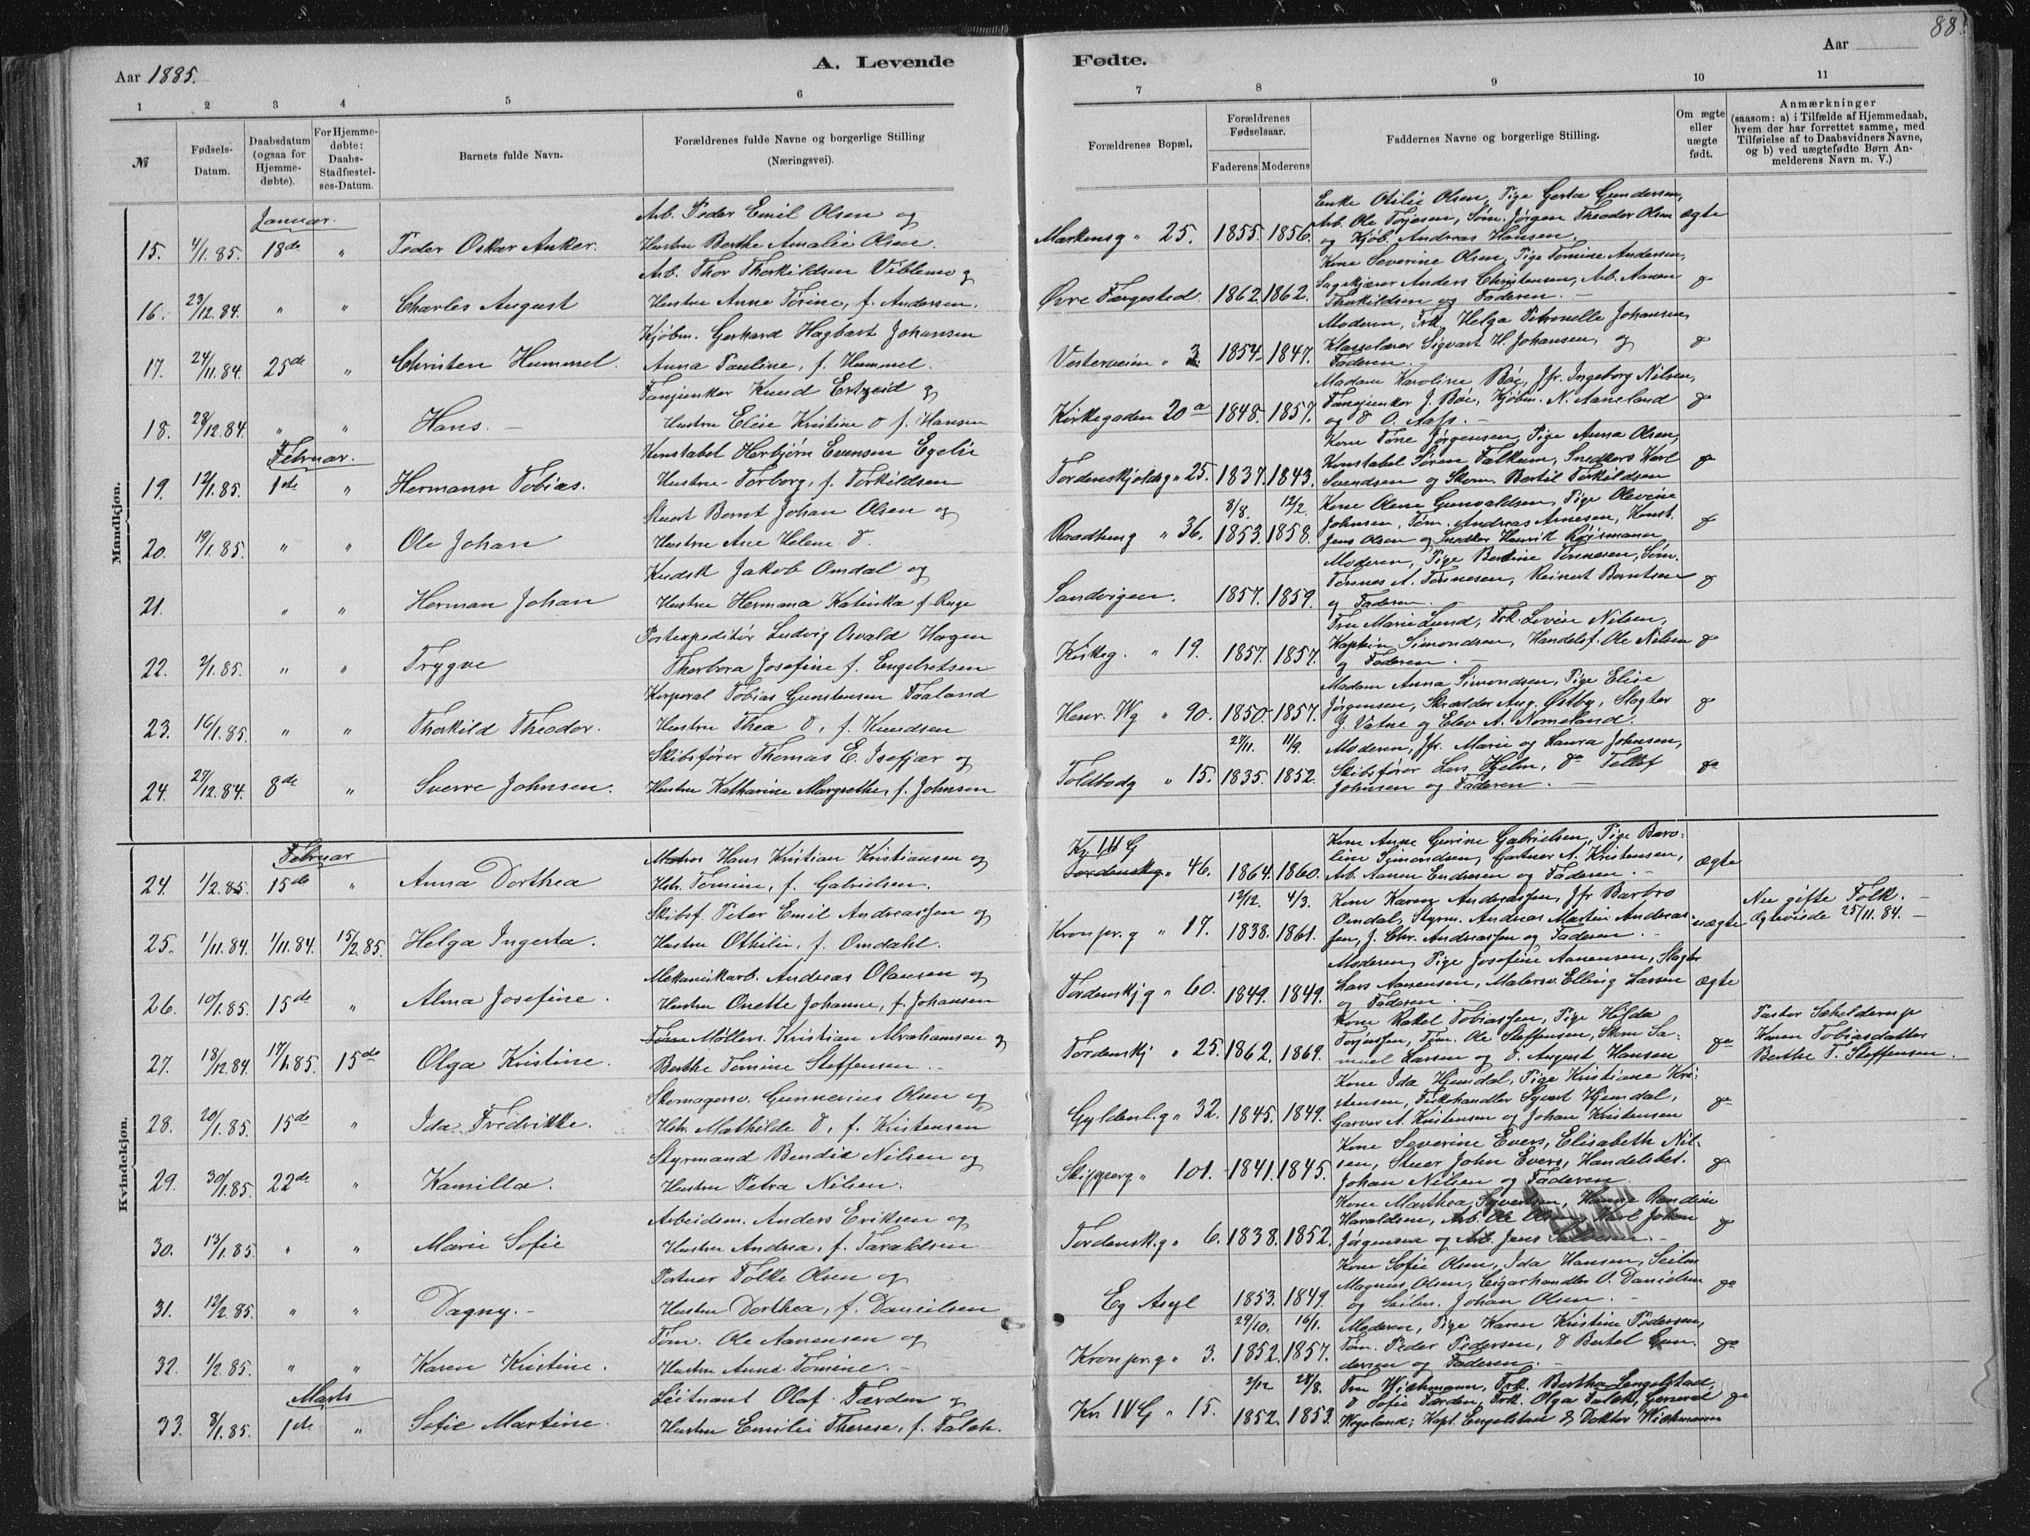 88.
Aar 1885.
A. Levende
Fødte.
Aar
1 2 3 4 5 6 7 8 9 10 11
№
Fødsels-Datum.
Daabsdatum (ogsaa for Hjemmedøbte).
For Hjemmedøbte: Daabs-Stadfæstelses-Datum.
Barnets fulde Navn.
Forældrenes fulde Navne og borgerlige Stilling (Næringsvei).
Forældrenes Bopæl.
Forældrenes Fødselsaar.
Faderens Moderens
Faddernes Navne og borgerlige Stilling.
Om ægte eller uægte født.
Anmærkninger
(saasom: a) i Tilfælde af Hjemmedaab, hvem der har forrettet samme, med Tilføielse af to Daabsvidners Navne, og b) ved uægtefødte Børn Anmelderens Navn m. V.)
Mandkjøn.
Januar.
15. 4/1.85. 18de " Peder Oskar Anker.
Arb. Peder Emil Olsen og
Hustru Berthe Amalie Olsen.
Markensg " 25. 1855. 1856.
Enke Otilie Olsen, Pige Gerta Gundersen,
Arb. Ole Torjesen, Søm. Jørgen Theodor Olsen
og Kjøb. Andreas Hansen.
ægte
16. 23/12.84. " " Charles August
Arb. Thor Thorkildsen Viblemo og
Hustru Anne Tørine, f. Andersen.
Øvre Færgested 1862. 1862.
Kone Severine Olsen, Pige Tomine Andersen,
Sagskjærer Anders Christensen, Arb. Aanen
Thorkildsen og Faderen.
do
17. 24/11.84. 25de " Christen Hummel.
Kjøbm. Gerhard Hagbart Johansen
Anna Pauline, f. Hummel.
Vesterveien " 3. 1854. 1847.
Moderen, Frk. Helga Petronelle Johansen,
Klasselærer Sigvart H. Johansen, og
Faderen.
do
18. 28/12.84. " " Hans.
Tangjenker Knud Ertzeid og
Hustru Elise Kristine do f. Hansen
Kirkegaden 20a 1848. 1857.
Madam Karoline Bøe, Jfr. Ingeborg Nilsen,
Tangjenker J. Bøe, Kjøbm. N. Aaneland
og do O. Aass.
do
Februar.
19. 12/1.85. 1ste " Hermann Tobias.
Konstabel Herbjørn Evensen Egelie
Hustru Torborg, f. Torkildsen
Tordenskjoldsg " 25. 1837. 1843.
Kone Tone Jørgensen, Pige Anna Olsen,
Konstabel Søren Falkum, Snedkers. Karl
Svendsen og Skom. Bertil Torkildsen
do
20. 19/1.85. " " Ole Johan
Stuert Bernt Johan Olsen og
Hustru Ane Helene do.
Raadhusg " 36. 8/8. 1853. 12/2. 1858.
Kone Olene Gunvaldsen, Pige Olevine
Johnsen, Tøm. Andreas Arnesen, Konst.
Jens Olsen og Snedker Henrik
do
21. " " Herman Johan
Kudsk Jakob Omdal og
Hustru Hermana Katinka f. Auge
Sandvigen. 1857. 1859.
Moderen, Pige Bertine Tønnesen, Søm.
Tønnes A. Tønnesen, Reinert Berntsen
og Faderen.
do
22. 2/1.85. " " Trygve
Postexpeditør Ludvig Osvald Hagen
Thorbora Josefine f. Engebretsen
Kirkeg. " 19. 1857. 1857.
Fru Marie Lund, Frk. Lovise Nilsen,
Kaptein Simondsen, Handelsf. Ole Nilsen
og Faderen.
do
23. 16/1.85. " " Thorkild Theodor.
Korporal Tobias Gunstensen Faaland
Hustru Thea do, f. Knudsen
Henr. Wg " 90. 1850. 1857.
Madam Anna Simondsen, Pige Elise
Jørgensen, Skrædder Aug. Østby, Slagter
J. Vatne og Elev A. Nomeland.
do
24. 27/12.84. 8de " Sverre Johnsen.
Skibsfører Thomas E. Isefjær og
Hustru Katharine Margrethe, f. Johnsen
Toldbodg " 15. 27/11. 1835. 11/9. 1852.
Moderen, Jfr. Marie og Laura Johnsen,
Skibsfører Lars Hjelm, do Tellef
Johnsen og Faderen.
do
Kvindekjøn.
Februar
24. 1/2.85. 15de " Anna Dorthea
Matros Hans Kristian Kristiansen og
Hstr. Tomine, f. Gabrielsen.
Kr III G Tordenskg " 46. 1864. 1860.
Kone Anne Gurine Gabrielsen, Pige Bero-
line Simondsen, Gartner A. Kristensen,
Arb. Aanon Endresen og Faderen.
ægte
25. 1/11.84. 1/11.84. 15/2.85. Helga Ingerta.
Skibsf. Peter Emil Andreassen og
Hustru Othilie, f. Omdahl.
Kronpr.g " 17. 12/12. 1838. 4/3. 1861.
Kone Karen Andreassen, Jfr Barbro
Omdal, Styrm. Andreas Martin Andreas-
sen, J. Chr. Andreassen og Faderen.
uægte
Nu gifte Folk.
Ægteviede 25/11.84.
26. 10/1.85. 15de " Alma Josefine.
Mekanikarb. Andreas Olausen og
Hustru Onette Johanne, f. Johansen
Tordenskj g " 60. 1849. 1849.
Moderen, Pige Josefine Aanensen, Slagter
Lars Aanensen, Malersv. Elling Larsen
og Faderen.
ægte
27. 18/12.84. 17/1.85. 15de Olga Kristine.
Tøm Møllers. Kristian Abrahamsen og
Berthe Tomine Steffensen.
Tordenskj " 25. 1862. 1869.
Kone Rakel Tobiassen, Pige Hilda
Torjussen, Tøm. Ole Steffensen, Skom Sa-
muel Larsen og do August Hansen
do
Pastor
Karen Tobiasdatter
Berthe T. Steffensen.
28. 20/1.85. 15de " Ida Fredrikke.
Skomagersv. Gunnerius Olsen og
Hstr. Mathilde do, f. Kristensen
Gyldenl.g " 32. 1845. 1849.
Kone Ida Hjemdal, Pige Kristiane Kri-
stensen, Fiskehandler Syvert Hjemdal,
Garver A. Kristensen og Johan Kristensen
do
29. 30/1.85. 22de " Kamilla.
Styrmand Bendik Nilsen og
Hustru Petra Nilsen.
Skipperg " 101. 1841. 1845.
Kone Severine Evers, Elisabeth Nil-
sen, Stuer John Evers, Handelsbet.
Johan Nilsen og Faderen.
do
30. 13/1.85. " " Marie Sofie
Arbeidsm. Anders Eriksen og
Hustru Andrea, f. Taraldsen
Tordensk.g " 6. 1838. 1852.
Kone Marthea Syvertsen, Hanne Randine
Haraldsen, Arb. Ole Karl Johan
Jørgensen og Arb. Jens
do
31. 12/2.85. " " Dagny.
Portner Følke Olsen og
Hustru Dorthea, f. Danielsen
Eg Asyl 1853. 1849.
Kone Sofie Olsen, Ida Hansen, Seilm
Magnus Olsen, Cigarhandler O. Danielsen
og Seilm. Johan Olsen.
do
32. 1/2.85. " " Karen Kristine.
Tøm. Ole Aanensen og
Hustru Anne Tomine.
Kronpr.g " 3. 29/10. 1852. 16/1. 1857.
Moderen, Pige Karen Kristine Pedersen,
Tøm. Peder Pedersen, do Bertel Gun-
dersen og Faderen.
do
Marts
33. 8/1.85. 1ste " Sofie Martine.
Leitnant Olaf Færden og
Hustru Emilie Therese, f. Falck.
Kr IV G " 15. 2/12 1852. 28/8. 1853.
Fru Wichmann, Frk. Bertha Engelstad,
do Sofie Færden, Frk. Olga Falck, General
Wogeland; Kapt. Engelstad & Doktor Wichmann
do